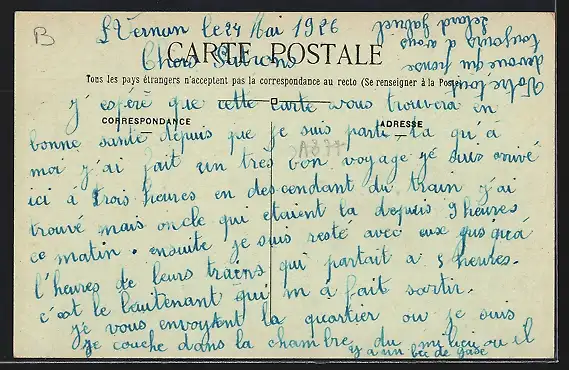 B
Vernun le 24 Mai 1926
CARTE POSTALE
Chers Patrons
Tous les pays étrangers n'acceptent pas la correspondance au recto (Se renseigner à la Poste)
j'espère que cette carte vous trouvera en
CORRESPONDANCE
ADRESSE
bonne santé depuis que je suis parti la qu'à
moi j'ai fait un très bon voyage je suis arrivé
A377
ici à trois heures en descendant du train j'ai
trouvé mais oncle qui etaient la depuis 9 heures
ce matin. ensuite je suis resté avec eux jusquà
l'heures de leurs trains qui partait a 5 heures.
c'est le lieutenant qui m'à fait sortir.
je vous envoyent la quartier ou je suis
je couche dans la chambre du milieu ou il
y a un bec de gase
Votre tout
devoué qui pense
toujours a vous
Gabriel